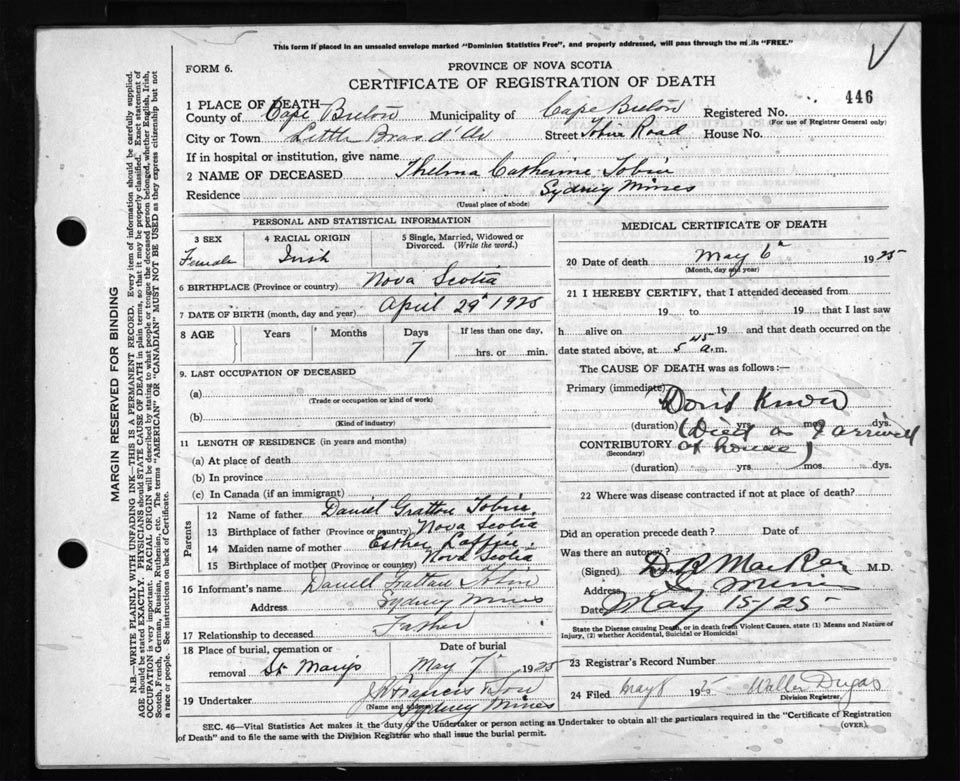 This form if placed in an unsealed envelope marked "Dominion Statistics Free", and properly addressed, will pass through the mails "FREE."
FORM 6.
PROVINCE OF NOVA SCOTIA
CERTIFICATE OF REGISTRATION OF DEATH
446
1 PLACE OF DEATH
County of Cape Breton Municipality of Cape Breton Registered No.
(For use of Registrar General only)
City or Town Little Bras d'Or Street Tobin Road House No.
If in hospital or institution, give name
2 NAME OF DECEASED Thelma Catherine Tobin
Residence Sydney Mines
(Usual place of abode)
PERSONAL AND STATISTICAL INFORMATION
3 SEX 4 RACIAL ORIGIN 5 Single, Married, Widowed or Divorced. (Write the word.)
Female Irish
6 BIRTHPLACE (Province or country) Nova Scotia
7 DATE OF BIRTH (month, day and year) April 29th 1925
8 AGE Years Months Days If less than one day,
7 hrs. or min.
9. LAST OCCUPATION OF DECEASED
(a)
(Trade or occupation or kind of work)
(b)
(Kind of industry)
11 LENGTH OF RESIDENCE (in years and months)
(a) At place of death
(b) In province
(c) In Canada (if an immigrant)
Parents
12 Name of father Daniel Grattan Tobin
13 Birthplace of father (Province or country) Nova Scotia
14 Maiden name of mother Esther Laffin
15 Birthplace of mother (Province or country) Nova Scotia
16 Informant's name Daniel Grattan Tobin
Address Sydney Mines
17 Relationship to deceased Father
18 Place of burial, cremation or removal St Marys
Date of burial May 7th 1925
19 Undertaker J. Francis & Son
(Name and address) Sydney Mines
MEDICAL CERTIFICATE OF DEATH
20 Date of death May 6th 1925
(Month, day and year)
21 I HEREBY CERTIFY, that I attended deceased from
19 to 19 that I last saw
h alive on 19 and that death occurred on
date stated above, at 5 45 a.m.
The CAUSE OF DEATH was as follows:—
Primary (immediate) Don't know
(duration) yrs. mos. dys.
(Died as I arrived
CONTRIBUTORY at house)
(Secondary)
(duration) yrs. mos. dys.
22 Where was disease contracted if not at place of death?
Did an operation precede death? Date of
Was there an autopsy?
(Signed) M.D.
Address S. Mines
Date May 15/25
State the Disease causing Death, or in death from Violent Causes, state (1) Means and Nature of
Injury, (2) whether Accidental, Suicidal or Homicidal
23 Registrar's Record Number
24 Filed May 8 1925 Walter Dugas
Division Registrar
SEC. 46—Vital Statistics Act makes it the duty of the Undertaker or person acting as Undertaker to obtain all the particulars required in the "Certificate of Registration
of Death" and to file the same with the Division Registrar who shall issue the burial permit.
(OVER).
MARGIN RESERVED FOR BINDING
N.B.—WRITE PLAINLY WITH UNFADING INK—THIS IS A PERMANENT RECORD. Every item of information should be carefully supplied.
AGE should be stated EXACTLY. PHYSICIANS should STATE CAUSE OF DEATH in plain terms, so that it may be properly classified. Exact statement of
OCCUPATION is very important. RACIAL ORIGIN will be described by stating to what people or tongue the deceased person belonged, whether English, Irish,
Scotch, French, German, Russian, Ruthenian, etc. The terms "AMERICAN" or "CANADIAN" MUST NOT BE USED as they express citizenship but not
a race or people. See instructions on back of Certificate.